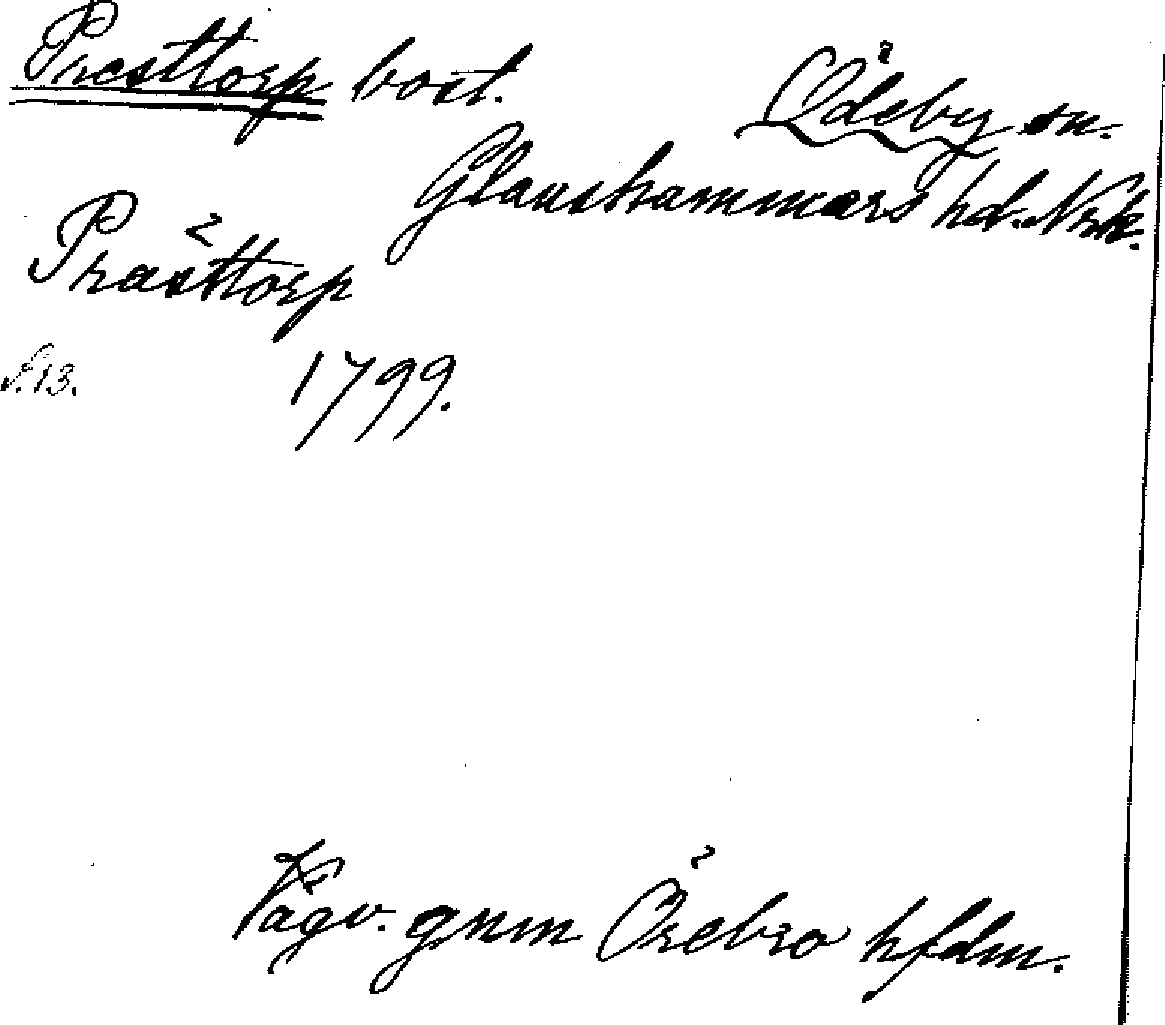 Presttorp bost.
Ödeby sn.
Glanshammars hd. Nrk.
Prästtorp
s. 13.
1799.
Vägv. gnm Örebro hfdm.